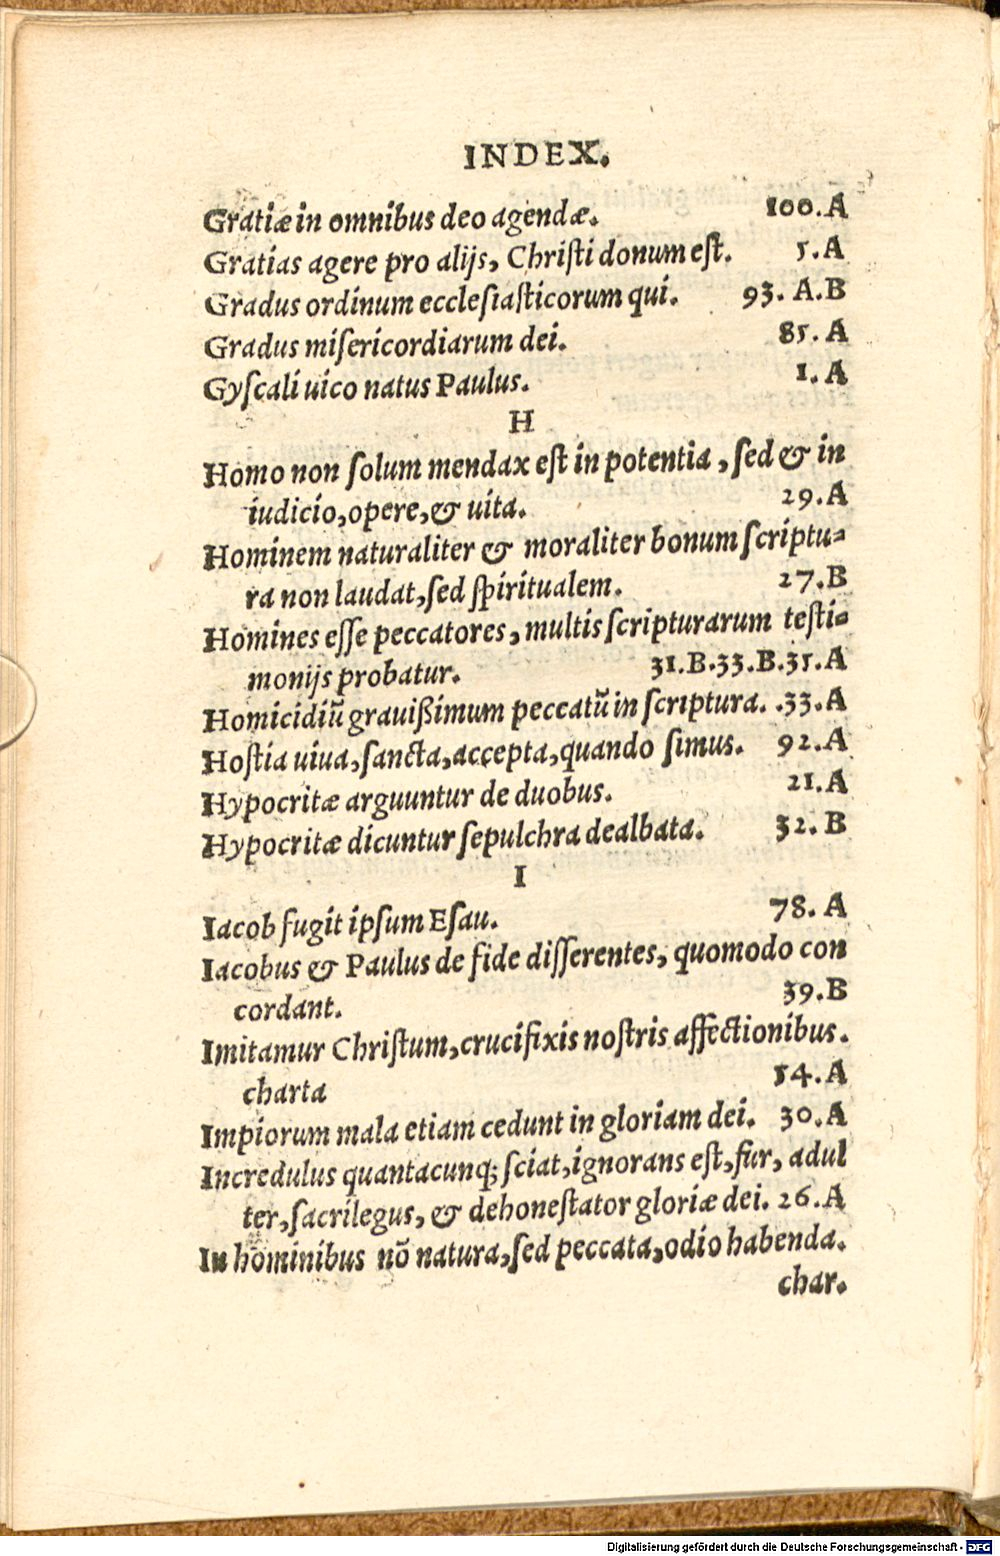 INDEX.
Gratiæ in omnibus deo agendæ. 100.A
Gratias agere pro alijs, Chriſti donum eſt. 5.A
Gradus ordinum eccleſiaſticorum qui. 93. A.B
Gradus miſericordiarum dei. 85. A
Gyſcali uico natus Paulus. 1. A
H
Homo non ſolum mendax eſt in potentia, ſed & in
iudicio, opere, & uita. 29.A
Hominem naturaliter & moraliter bonum ſcriptu-
ra non laudat, ſed ſpiritualem. 27.B
Homines eſſe peccatores, multis ſcripturarum teſti-
monijs probatur. 31.B.33.B.35.A
Homicidiũ grauißimum peccatũ in ſcriptura. .33.A
Hoſtia uiua, ſancta, accepta, quando ſimus. 92.A
Hypocritæ arguuntur de duobus. 21.A
Hypocritæ dicuntur ſepulchra dealbata. 32. B
I
Iacob fugit ipſum Eſau. 78. A
Iacobus & Paulus de fide differentes, quomodo con
cordant. 39.B
Imitamur Chriſtum, crucifixis noſtris affectionibus.
charta 54.A
Impiorum mala etiam cedunt in gloriam dei. 30.A
Incredulus quantacunq; ſciat, ignorans eſt, fur, adul
ter, ſacrilegus, & dehoneſtator gloriæ dei. 26.A
In hominibus nõ natura, ſed peccata, odio habenda.
char.
Digitalisierung gefördert durch die Deutsche Forschungsgemeinschaft - DFG